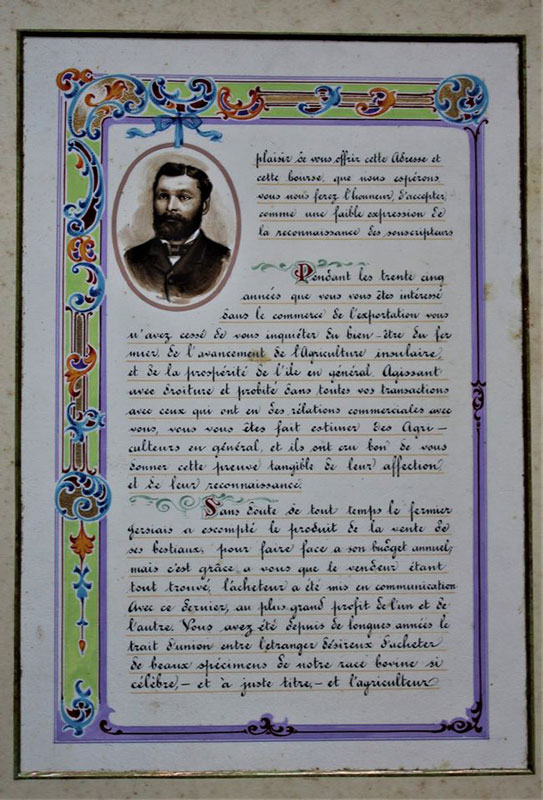 plaisir de vous offrir cette Adresse et
cette bourse, que nous espérons
vous nous ferez l'honneur, d'accepter
comme une faible expression de
la reconnaissance des souscripteurs
Pendant les trente cinq
années que vous vous êtes intéressé
dans le commerce de l'exportation vous
n'avez cessé de vous inquiéter du bien-être du fer
mier, de l'avancement de l'Agriculture insulaire,
et de la prospérité de l'île en général. Agissant
avec droiture et probité dans toutes vos transactions
avec ceux qui ont eu des rélations commerciales avec
vous, vous vous êtes fait estimer des Agri-
culteurs en général, et ils ont cru bon de vous
donner cette preuve tangible de leur affection
et de leur reconnaissance.
Sans doute de tout temps le fermier
Jersiais a escompté le produit de la vente de
ses bestiaux, pour faire face a son budget annuel;
mais c'est grâce, a vous que le vendeur étant
tout trouvé, l'acheteur a été mis en communication
avec ce dernier, au plus grand profit de l'un et de
l'autre. Vous avez été depuis de longues années le
trait d'union entre l'etranger désireux d'acheter
de beaux spécimens de notre race bovine si
célèbre,- et à juste titre,- et l'agriculteur